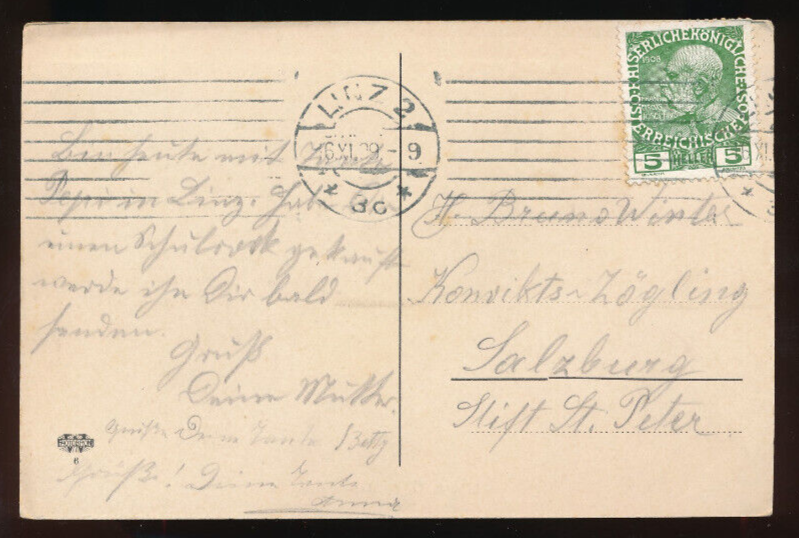 Bin heute mit Tante
Pepi in Linz. Habe
einen Schulrock gekauft
werde ihn Dir bald
senden.
Gruß
Deine Mutter.
Deine Tante Betty
Grüße! Deine Tante
Anna
6
LINZ 2
XI.09 - 9
* 3c *
KAISERLICHEKÖNIGLICHE
ÖSTERREICHISCHE
1908
5 HELLER 5
H. Bruno Winter
Konvikts-Zögling
Salzburg
Stift St. Peter